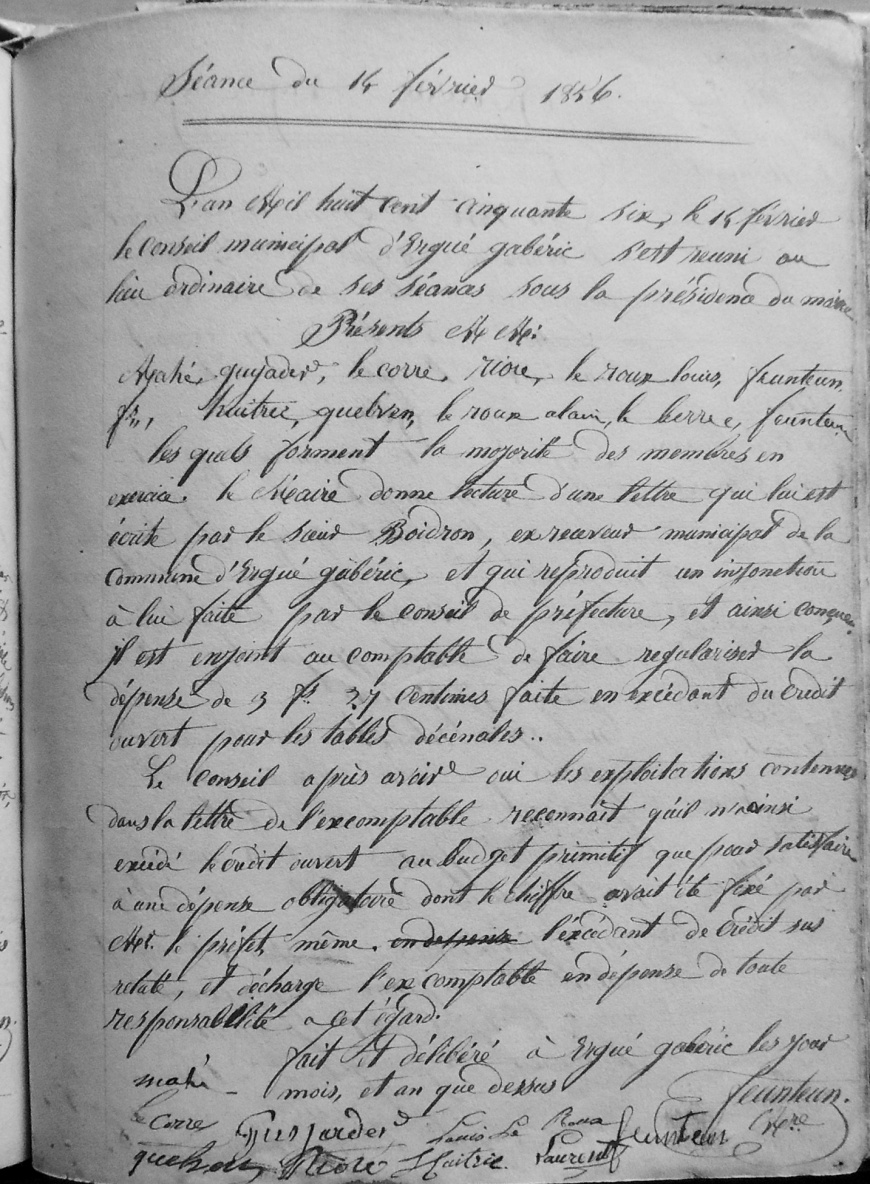 Séance du 14 février 1856.
L'an Mil huit cent cinquante six, le 14 février
le Conseil municipal d'Ergué gabéric s'est reuni au
lieu ordinaire de ses séances sous la présidence du maire
Présents MM:
Mahé, guyader, le corre, riou, le roux louis, feunteun
fs., huitric, quelven, le roux alain, le berre, feunteun
les quels forment la majorité des membres en
exercice. le Maire donne lecture d'une lettre qui lui est
écrite par le sieur Boidron, ex receveur municipal de la
Commune d'Ergué gabéric, et qui reproduit un injonction
à lui faite par le conseil de préfecture, et ainsi conçue.
il est enjoint au comptable de faire regulariser la
dépense de 3 fs 27 centimes faite en excédant du crédit
ouvert pour les tables décénales..
Le Conseil après avoir oui les exploitations contenues
dans la lettre de l'excomptable reconnait qu'il n'a ainsi
excédé le crédit ouvert au budget primitif que pour satisfaire
à une dépense obligatoire dont le chiffre avait été fixé par
Mr. le préfet, même en dépense l'excédant de crédit sus
relaté, et décharge l'ex comptable en dépense de toute
responsabilité a cet égard.
fait et délibéré à Ergué gabéric les jour
mois, et an que dessus
mahé feunteun.
le Corre Guyarder Louis Le Roux feunteun Mre
Riou Huitric Laurent